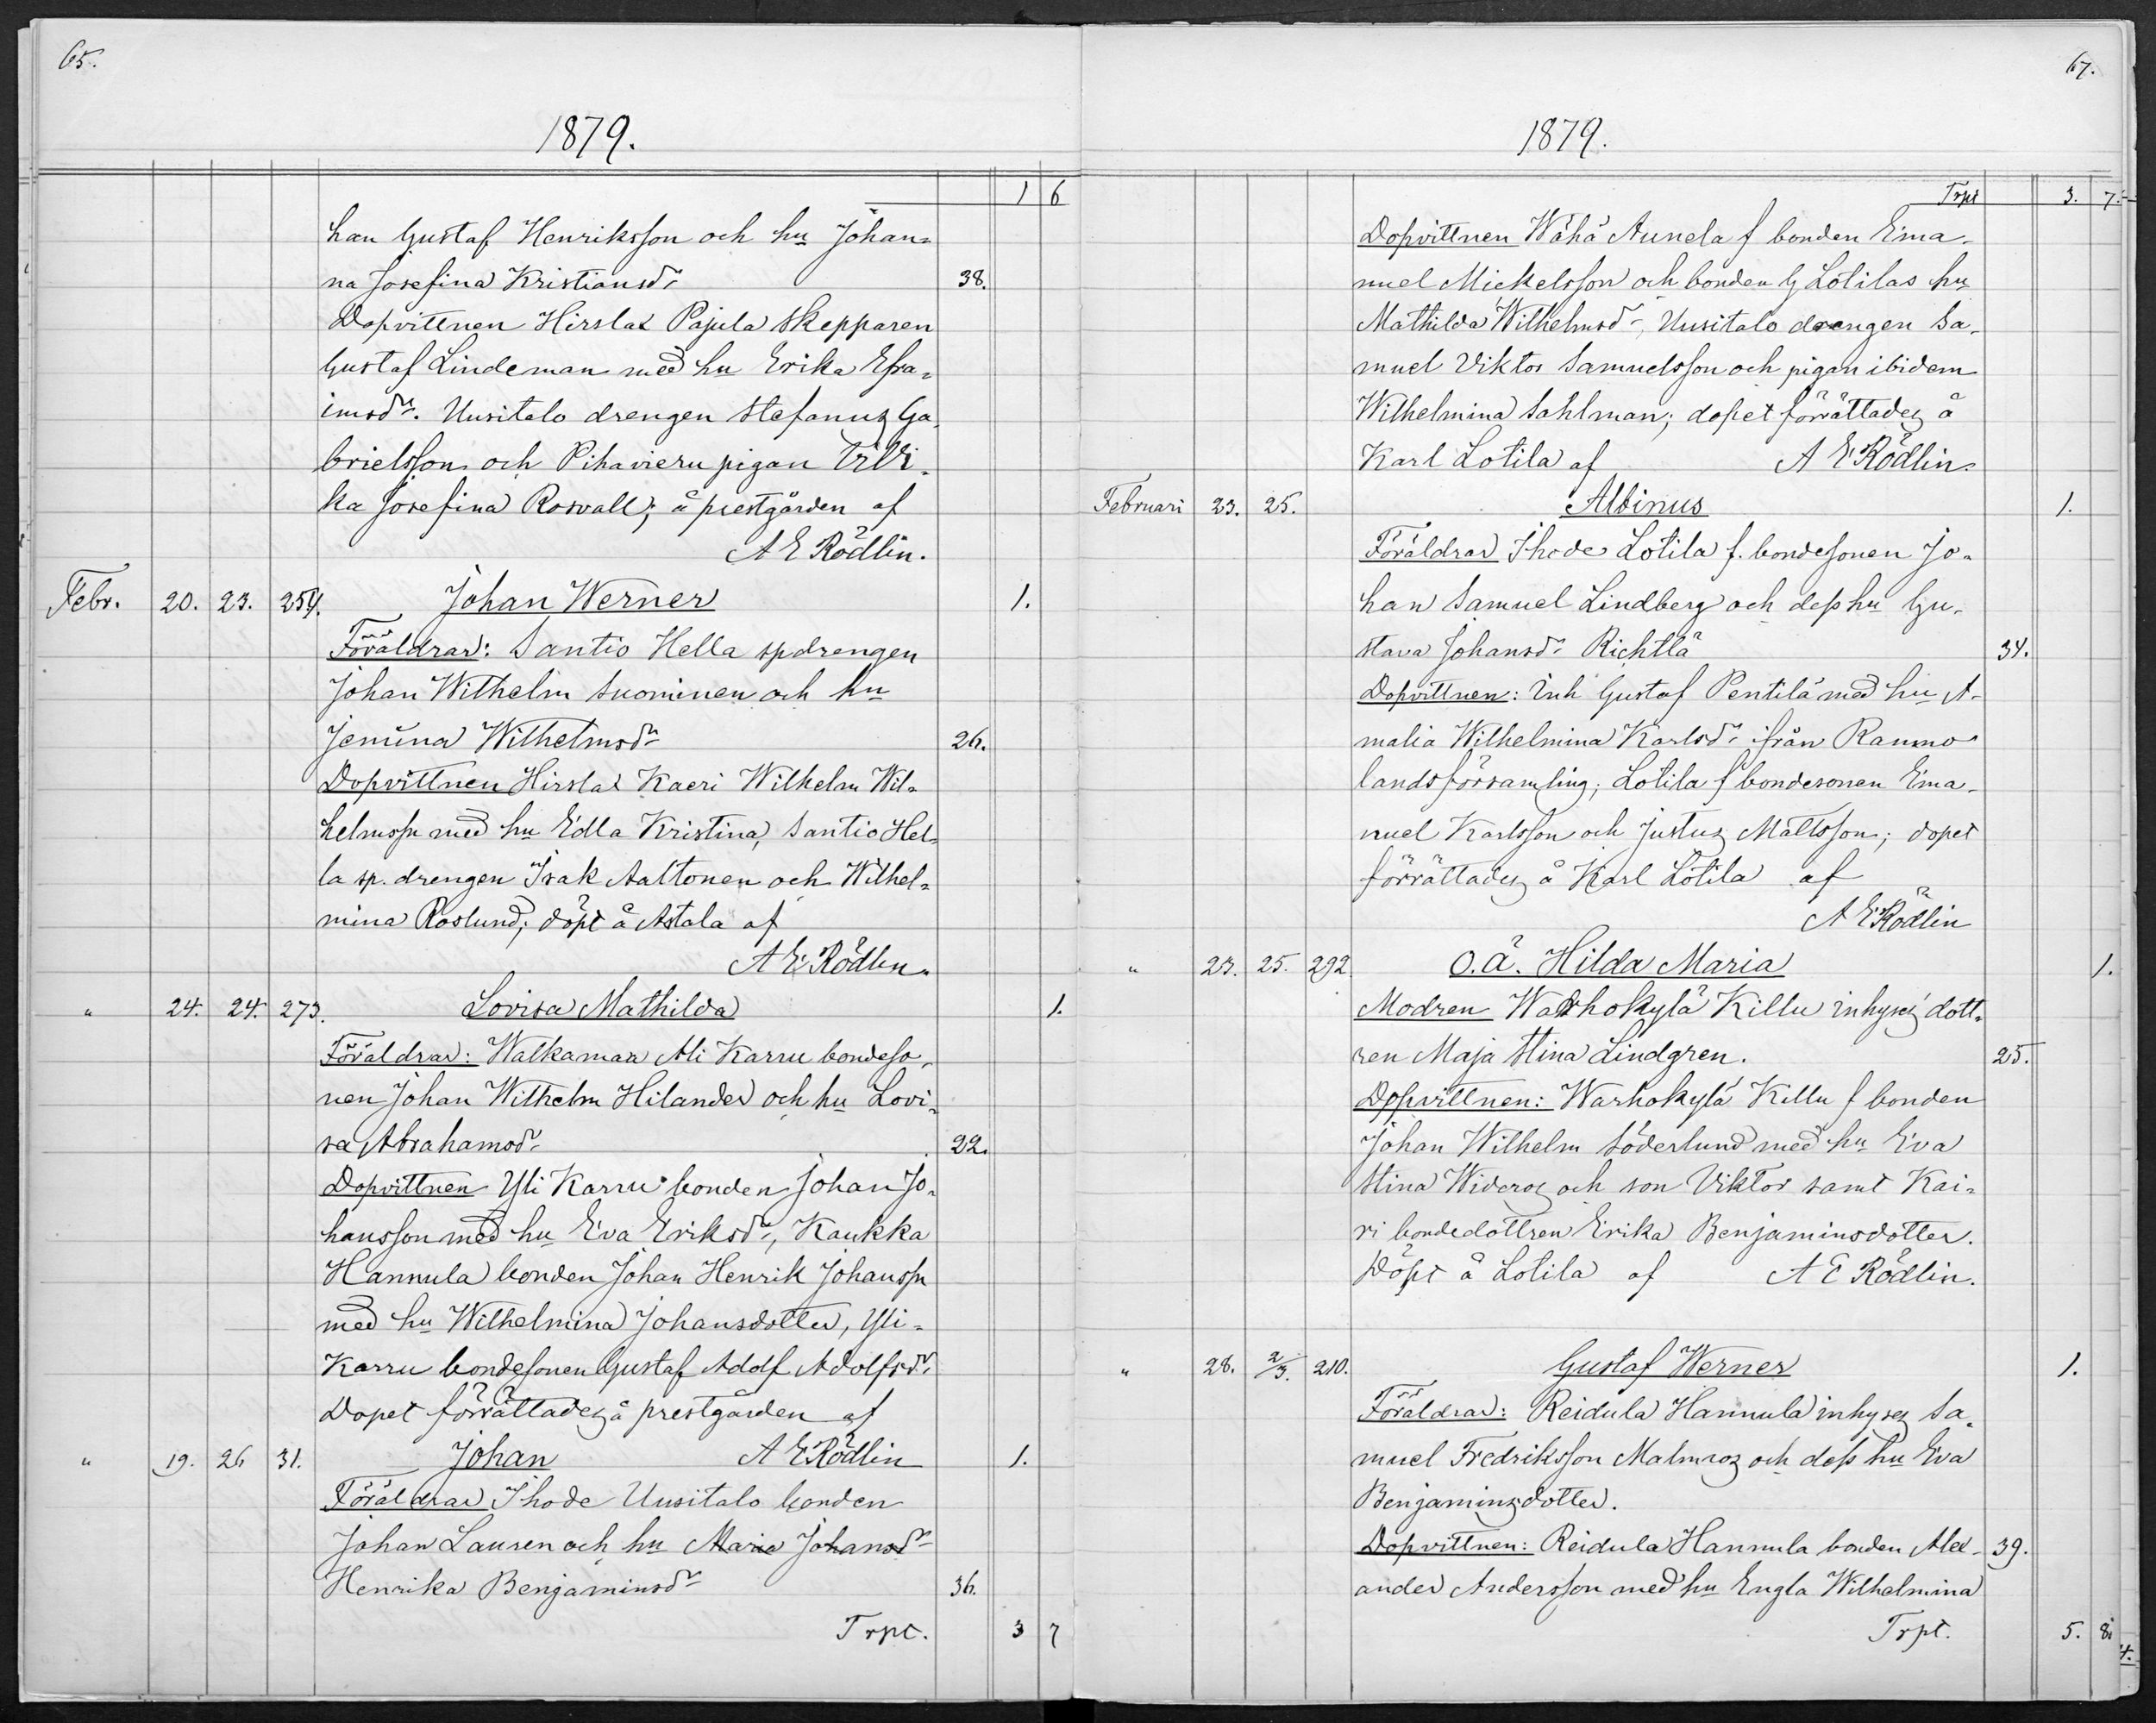 65.
1879.
1 6
han Gustaf Henriksson och hu Johan=
na Josefina Kristiansdr 38.
Dopvittnen Hirslax Pajula skepparen
Gustaf Lindeman med hu Erika Efra=
imsdr. Uusitalo drengen Stefanus Ga=
brielsson och Pihavieru pigan Ulri=
ka Josefina Rosvall; å prestgården af
A E Rödlin.
Febr. 20. 23. 254. Johan Werner 1.
Föräldrar: Santio Hella spdrengen
Johan Wilhelm Suominen och hu
Jemina Wilhelmsdr 26.
Dopvittnen Hirslax Kaeri Wilhelm Wil=
helmsson med hu Edla Kristina, Santio Hel=
la sp. drengen Isak Aaltonen och Wilhel=
mina Roslund; döpt å Astala af
A E Rödlin.
" 24. 24. 273. Lovisa Mathilda 1.
Föräldrar: Walkamaa Ali Karru bondeso=
nen Johan Wilhelm Hilander och hu Lovi=
sa Abrahamsdr 22.
Dopvittnen Yli Karru bonden Johan Jo=
hansson med hu Eva Eriksdr, Kaukka
Hannula bonden Johan Henrik Johansson
med hu Wilhelmina Johansdotter, Yli=
Karru bondesonen Gustaf Adolf Adolfsdr.
Dopet förrättades å prestgården af
" 19. 26 31. Johan A E Rödlin 1.
Föräldrar Ihode Uusitalo bonden
Johan Lauren och hu Maria Johansdr
Henrika Benjaminsdr 36.
Trpt. 3 7
67.
1879.
Trpt 3. 7.
Dopvittnen Wähä Aunela f bonden Ema=
nuel Mickelsson och bonden G Lotilas hu
Mathilda Wilhelmsdr, Uusitalo drengen Sa=
muel Viktor Samuelsson och pigan ibidem
Wilhelmina Sahlman; dopet förrättades å
Karl Lotila af A E Rödlin
Februari 23. 25. Albinus 1.
Föräldrar Ihode Lotila f. bondesonen Jo=
han Samuel Lindberg och dess hu Gu=
stava Johansdr Richtlä 34.
Dopvittnen: Inh Gustaf Pentilä med hu A=
malia Wilhelmina Karlsdr från Raumo
landsförsamling; Lotila f bondesonen Ema=
nuel Karlsson och Justus Mattsson; dopet
förrättades å Karl Lotila af
A E Rödlin
" 23. 25. 292 O.Ä. Hilda Maria 1.
Modren Warhokylä Killu inhyses dott=
ren Maja Stina Lindgren. 25.
Dopvittnen: Warhokylä Killu f bonden
Johan Wilhelm Söderlund med hu Eva
Stina Wideros och son Viktor samt Kai=
ri bondedottren Erika Benjaminsdotter.
Döpt å Lotila af A E Rödlin.
" 28. 2/3. 210. Gustaf Werner 1.
Föräldrar: Reidula Hannula inhyses Sa=
muel Fredriksson Malmros och dess hu Eva
Benjaminsdotter.
Dopvittnen: Reidula Hannula bonden Alex= 39.
ander Andersson med hu Engla Wilhelmina
Trpt. 5. 8.